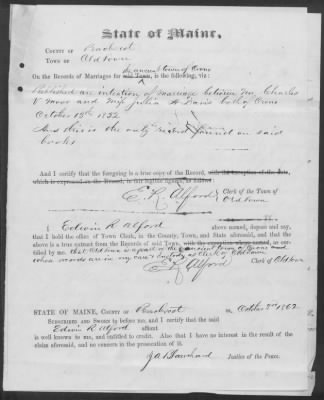 State of Maine,
COUNTY OF Penobscot
TOWN OF Oldtown
the ancient town of Orono
On the Records of Marriages for said Town, is the following, viz:
Published an intention of marriage between Mr. Charles
V Moor and Miss Julia A Davis both of Orono
October 13th 1832
And this is the only record found on said
books
And I certify that the foregoing is a true copy of the Record, with the exception of the date,
which is expressed on the Record, in
E. R. Alford Clerk of the Town of
Oldtown
I Edwin R Alford above named, depose and say,
that I hold the office of Town Clerk, in the County, Town, and State aforesaid, and that the
above is a true extract from the Records of said Town, with the exception above named, as cer-
tified by me. that Oldtown is a part of the ancient town of Orono and
whose records are in my care & custody as Clerk of Oldtown
E R Alford Clerk of Oldtown
STATE OF MAINE, COUNTY OF Penobscot ss. October 2nd 1862
SUBSCRIBED AND SWORN to before me; and I certify that the said
Edwin R Alford affiant
is well known to me, and entitled to credit. Also that I have no interest in the result of the
claim aforesaid, and no concern in the prosecution of it.
Justice of the Peace.